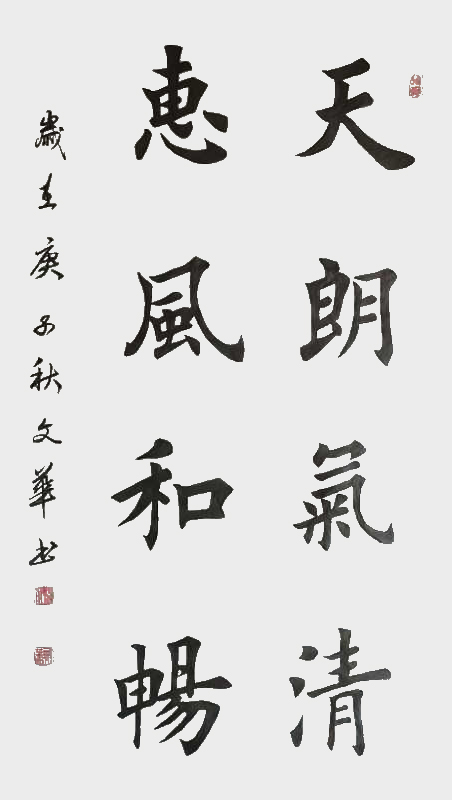 天朗氣清
惠風和暢
歲在庚子秋文華书